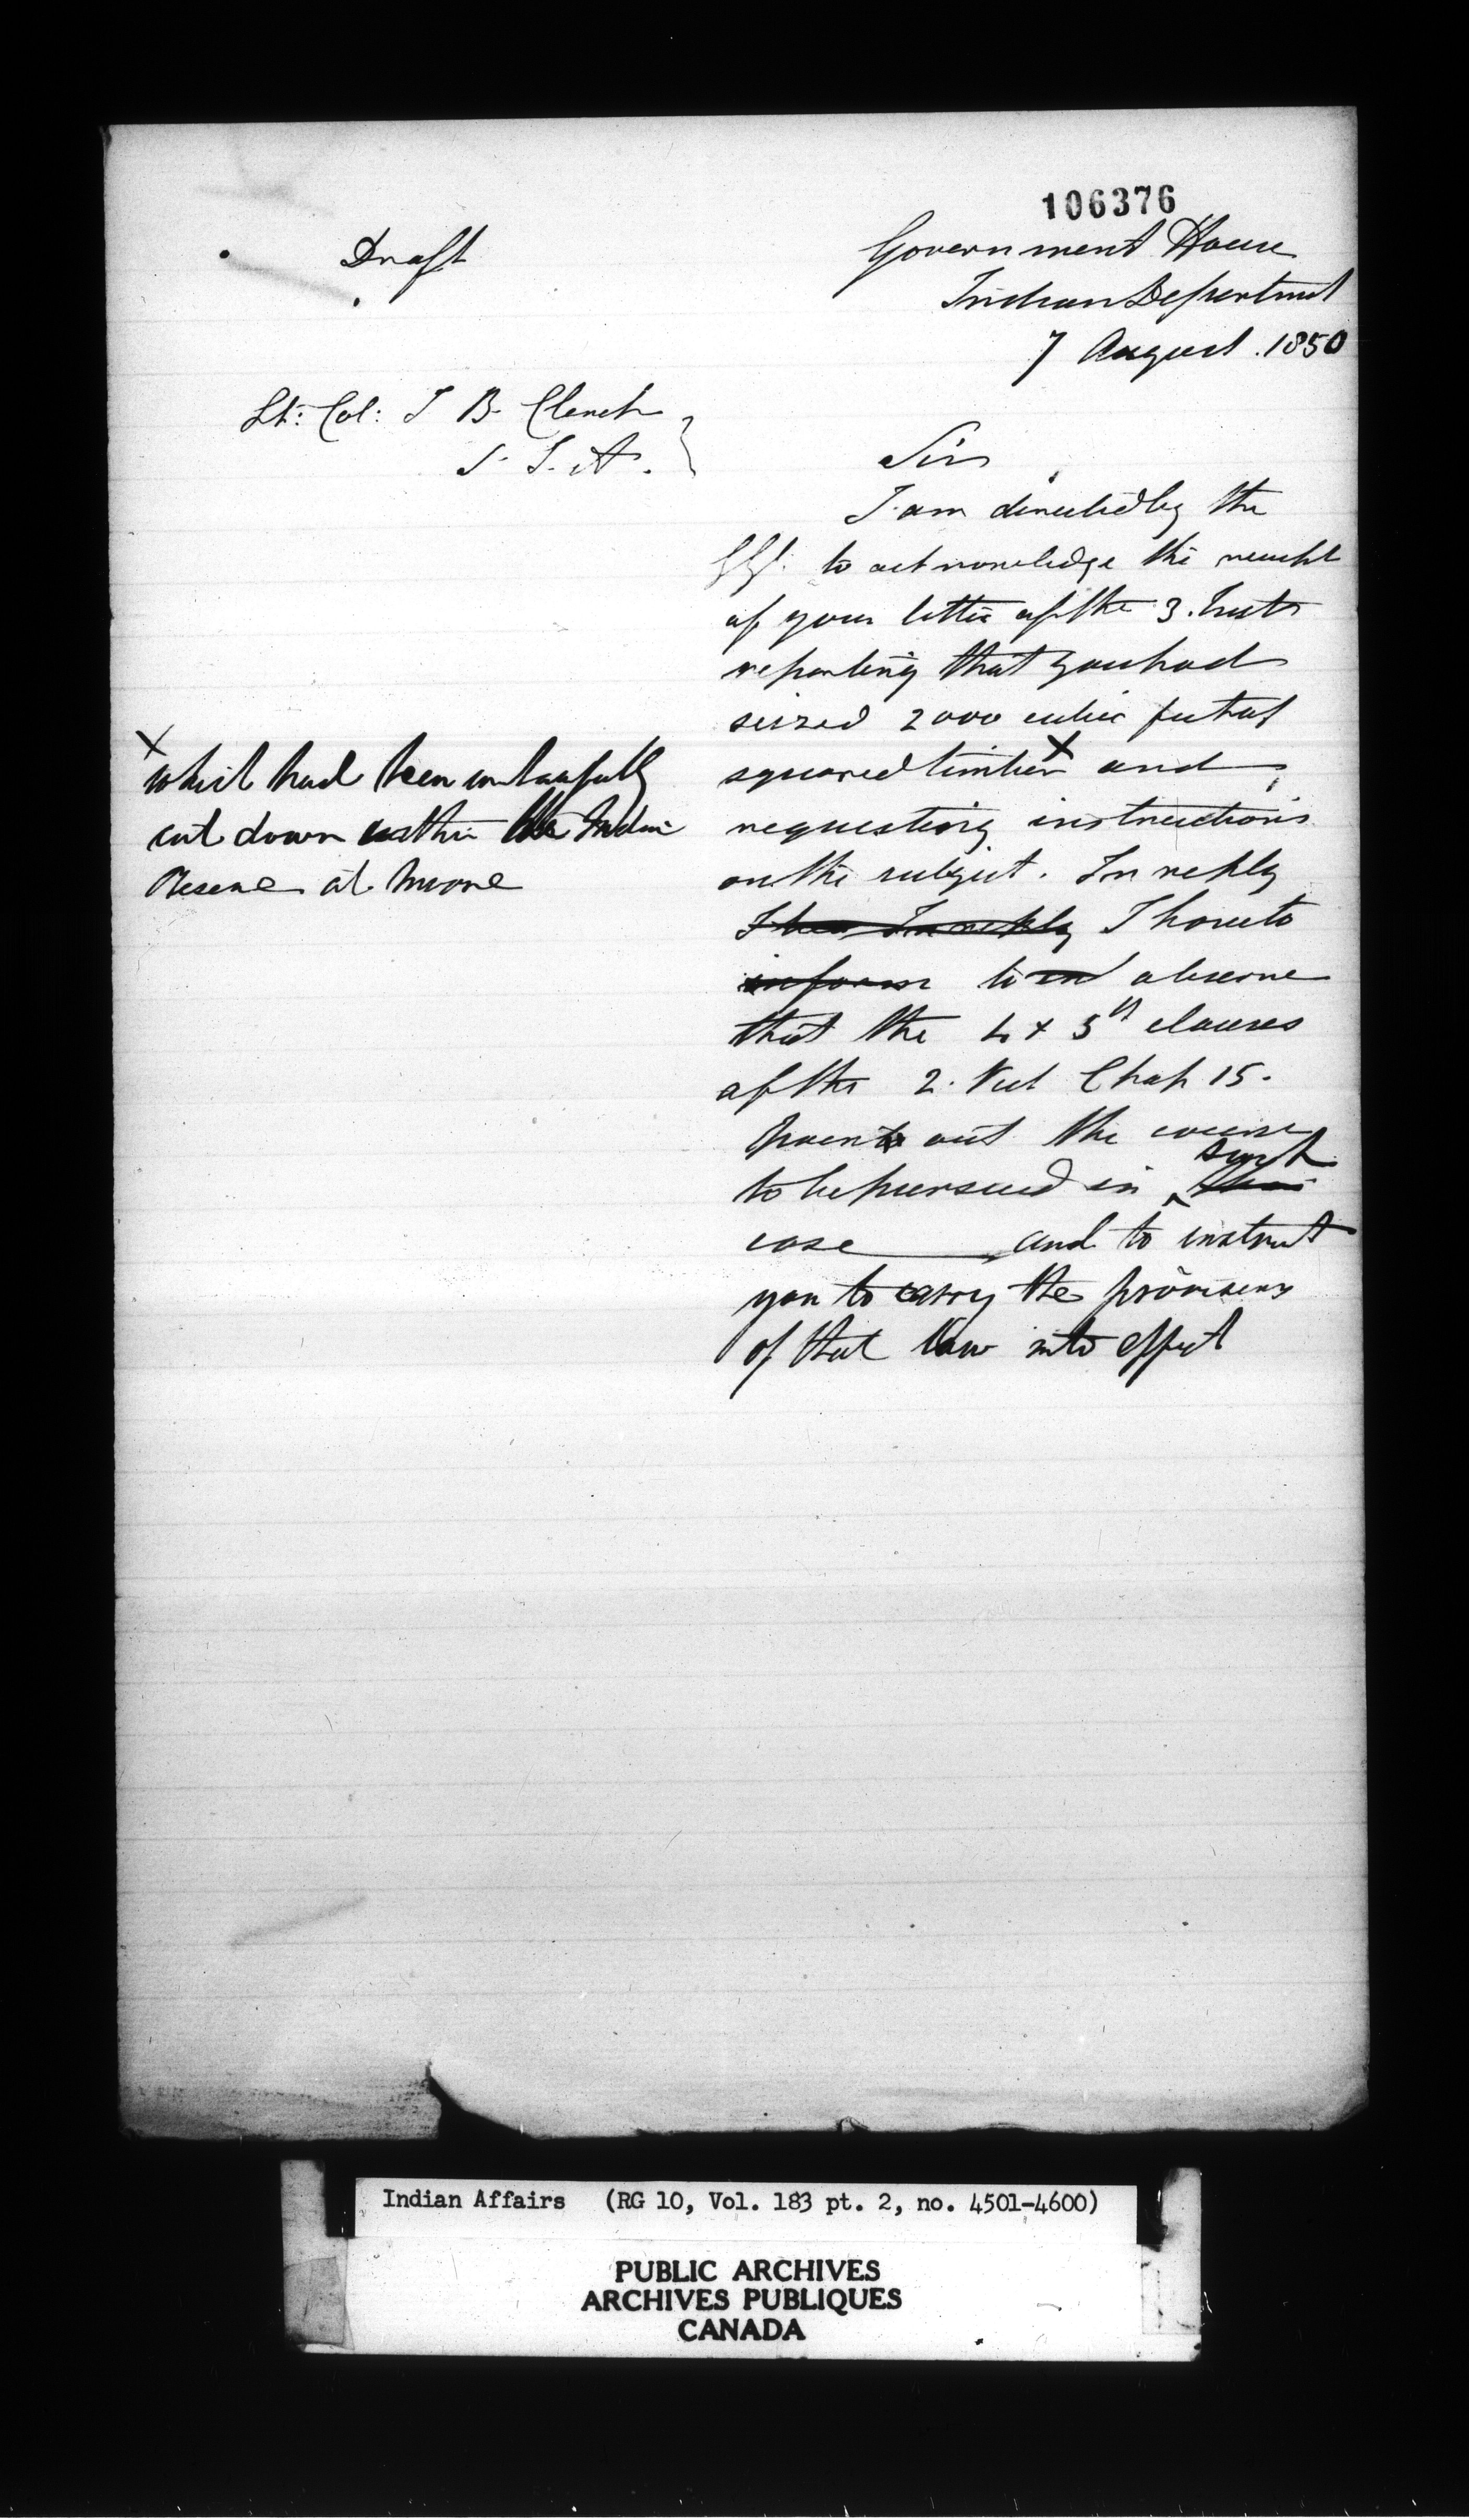 106376
Draft
Government House
Indian Department
7 August. 1850
Lt: Col: J B. Clench
S. I. A.
Sir
I am directed by the
GG. to acknowledge the receipt
of your letter of the 3. Inst
reporting that you had
seized 2000 cubic feet of
squared timber x and
requesting instructions
on the subject. In reply
I have In reply I have to
inform to observe
that the 4 & 5th clauses
of the 2. Vict Chap 15.
point out the course
to be pursued in such
case and to instruct
you to carry the provisions
of that law into effect
x
which had been unlawfully
cut down within the Indian
Reserve at Moore
Indian Affairs (RG 10, Vol. 183 pt. 2, no. 4501-4600)
PUBLIC ARCHIVES
ARCHIVES PUBLIQUES
CANADA